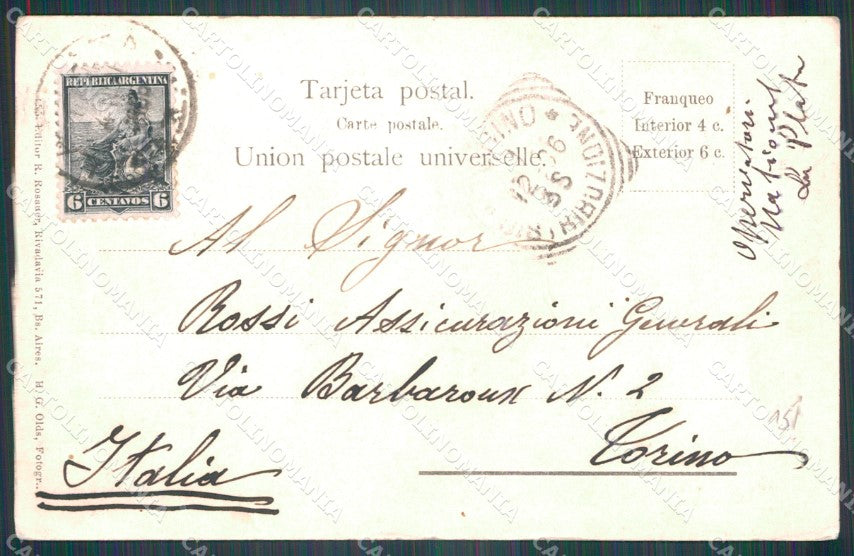 REPUBLICA ARGENTINA
6 CENTAVOS 6
Tarjeta postal.
Carte postale.
Union postale universelle.
Franqueo
Interior 4 c.
Exterior 6 c.
TORINO
DISTRIBUZIONE
Nationel
La Plata
Al Signor
Rossi Assicurazioni Generali
Via Barbaroux N. 2
Torino
Italia
Editor R. Rosauer, Rivadavia 571, Bs. Aires. H. G. Olds, Fotogr.
CARTOLINOMANIA